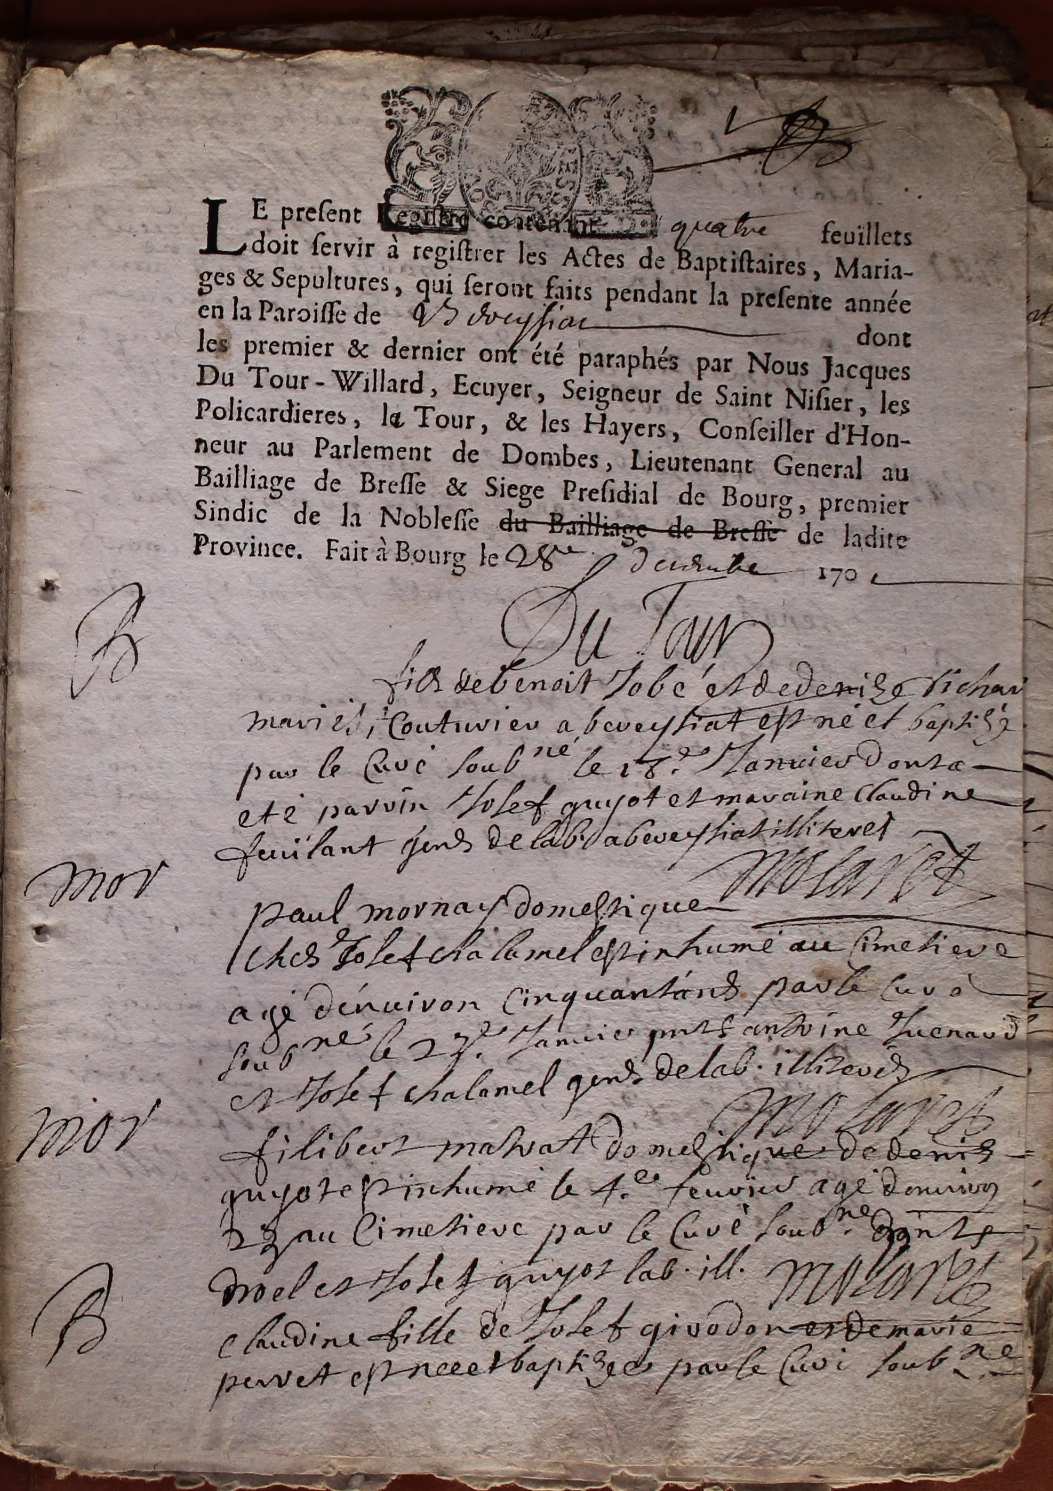 LE preſent Regiſtre contenant quatre feuillets
doit ſervir à regiſtrer les Actes de Baptiſtaires, Maria-
ges & Sepultures, qui ſeront faits pendant la preſente année
en la Paroiſſe de Beveyſiat dont
les premier & dernier ont été paraphés par Nous Jacques
Du Tour-Willard, Ecuyer, Seigneur de Saint Niſier, les
Policardieres, la Tour, & les Hayers, Conſeiller d'Hon-
neur au Parlement de Dombes, Lieutenant General au
Bailliage de Breſſe & Siege Preſidial de Bourg, premier
Sindic de la Nobleſſe du Bailliage de Breſſe de ladite
Province. Fait à Bourg le 28e decembre 170
Du Tour
B
fils de benoit Jobé et de denise Richar
mariés, Couturier a beveysiat est né et baptisé
par le Curé soubné le 18e Janvier dont a
eté parvin Josef guyot et maraine claudine
feuilant gens de lab. a beveysiat illiterés
Molaret
mor
paul mornay domestique
chés Josef chalamel est inhumé au Cimetiere
agé d'énuiron Cinquant'ans par le Curé
soubné le 27e Janvier pnts antoine Juenard
et Josef chalamel gens de lab. illiterés
Molaret
mor
filibert matrat domestique de denis
guyot est inhumé le 4e feuvrier agé denuiron
au Cimetiere par le Curé soubné
et Josef guyot lab. ill. Molaret
B
claudine fille de Josef givodon et de marie
perret est neé et baptisée par le Curé soubné